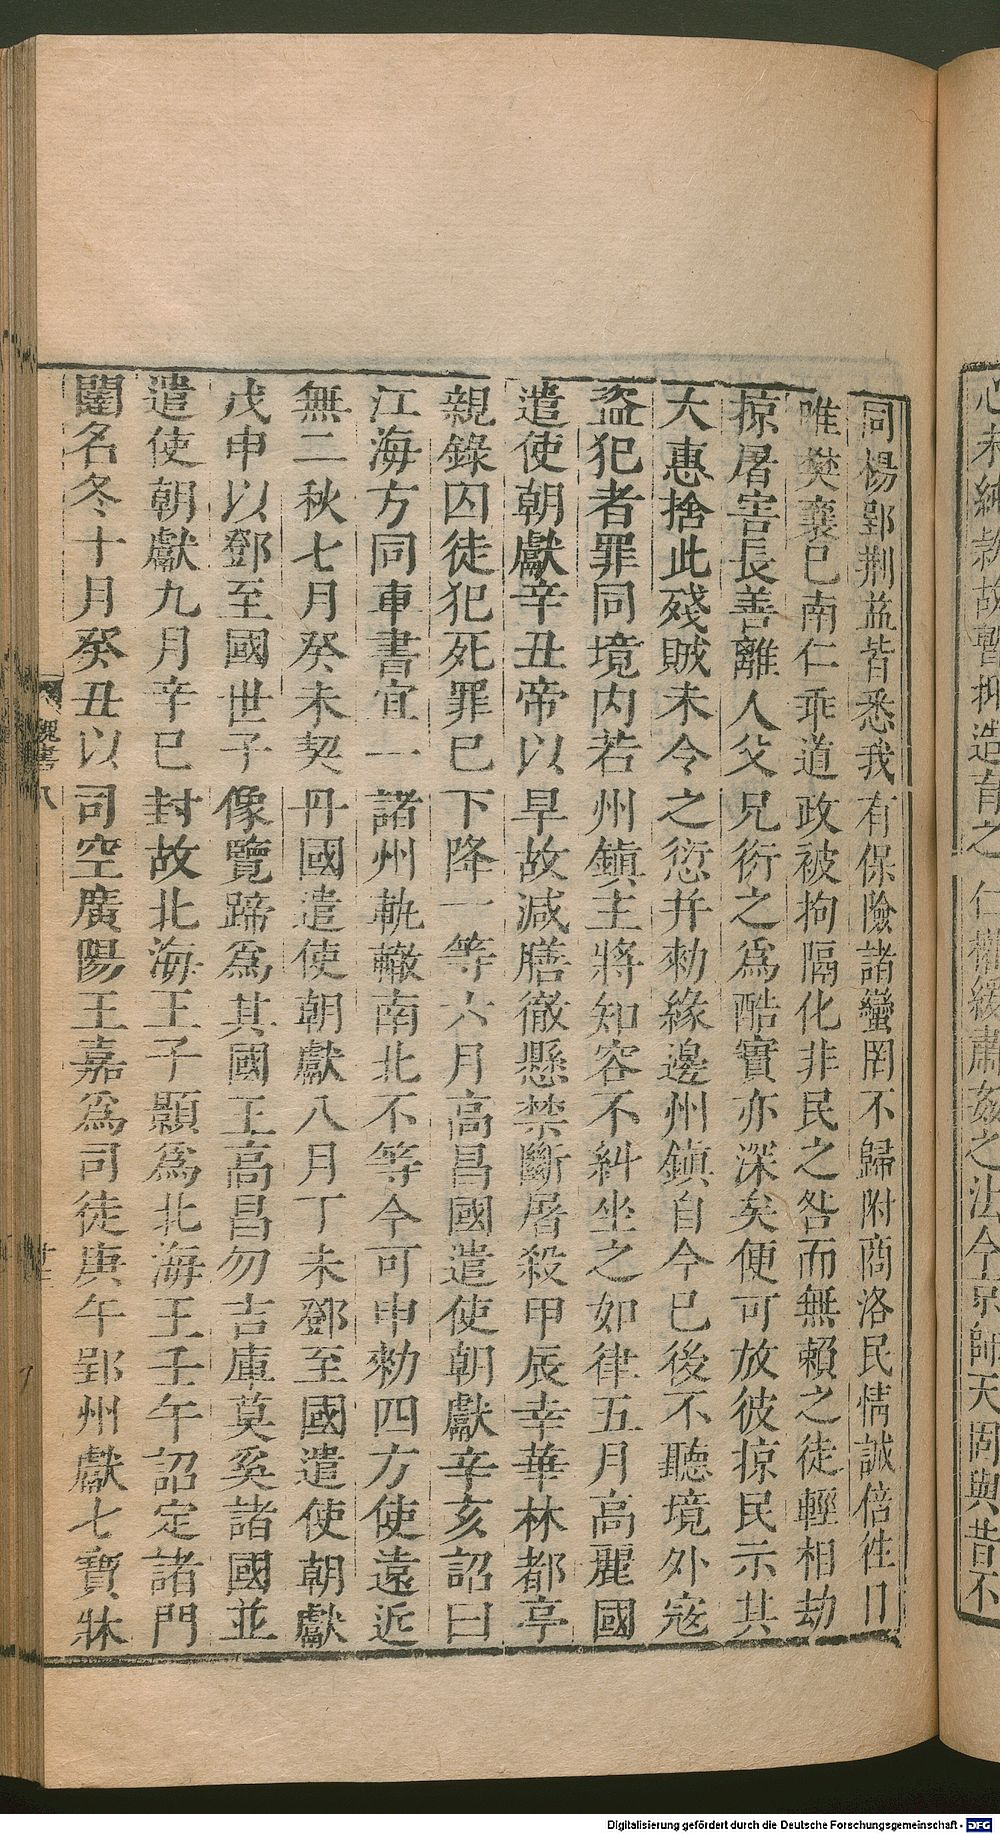 心未純款故暫抑造育之仁權緩肅姦之法今京師天固與昔不
同楊郢荆益皆悉我有保險諸蠻罔不歸附商洛民情誠倍徃日
唯樊襄巳南仁乖道政被拘隔化非民之咎而無賴之徒輕相劫
掠屠害長善離人父兄衍之爲酷實亦深矣便可放彼掠民示其
大惠捨此殘賊未令之愆并勑緣邊州鎮自今巳後不聽境外寇
盜犯者罪同境内若州鎮主將知容不糾坐之如律五月高麗國
遣使朝獻辛丑帝以旱故減膳徹懸禁斷屠殺甲辰幸華林都亭
親錄囚徒犯死罪巳下降一等六月高昌國遣使朝獻辛亥詔曰
江海方同車書宜一諸州軌轍南北不等今可申勑四方使遠近
無二秋七月癸未契丹國遣使朝獻八月丁未鄧至國遣使朝獻
戊申以鄧至國世子像覽蹄爲其國王高昌勿吉庫莫奚諸國並
遣使朝獻九月辛巳封故北海王子顥爲北海王壬午詔定諸門
闈名冬十月癸丑以司空廣陽王嘉爲司徒庚午郢州獻七寶牀
魏書八
十三
Digitalisierung gefördert durch die Deutsche Forschungsgemeinschaft - DFG